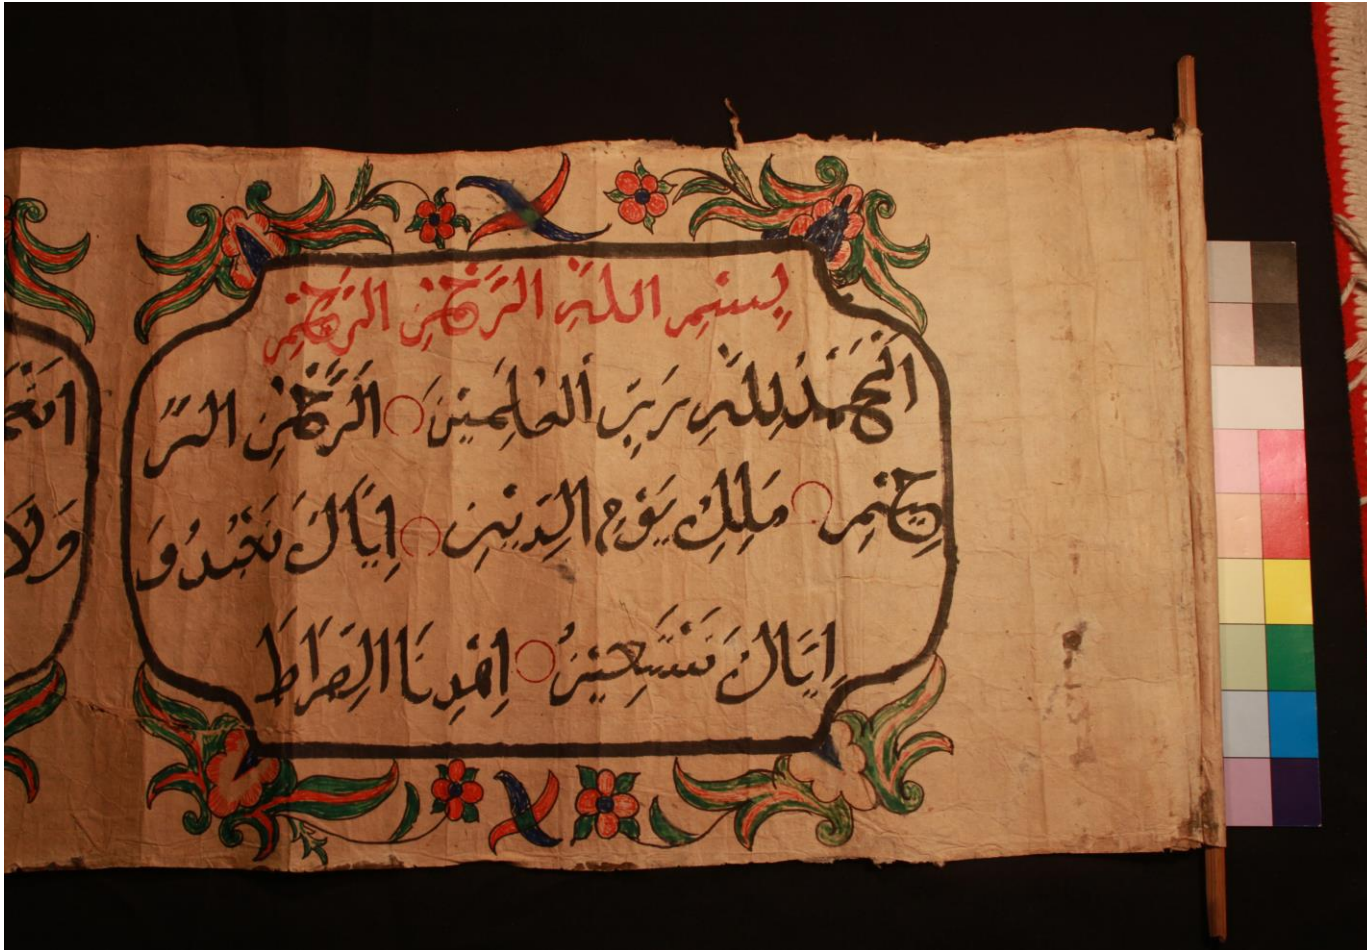 بِسْمِ اللّٰهِ الرَّحْمٰنِ الرَّحِيْمِ
اَلْحَمْدُ لِلّٰهِ رَبِّ الْعٰلَمِيْنَ ○ الرَّحْمٰنِ الرَّ
حِيْمِ ○ مٰلِكِ يَوْمِ الدِّيْنِ ○ اِيَّاكَ نَعْبُدُ وَ
اِيَّاكَ نَسْتَعِيْنُ ○ اِهْدِنَا الصِّرَاطَ
وَلَا